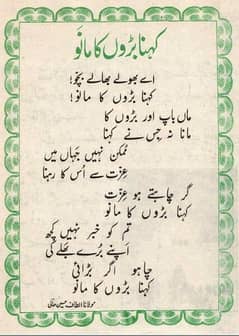 کہنا بڑوں کا مانو
اے بھولے بھالے بچّو!
کہنا بڑوں کا مانو!
ماں باپ اور بڑوں کا
مانا نہ جس نے کہنا
ممکن نہیں جہاں میں
عزّت سے اُس کا رہنا
گر چاہتے ہو عزّت
کہنا بڑوں کا مانو
تم کو خبر نہیں کچھ
اپنے بُرے بھلے کی
چاہو اگر بڑائی
کہنا بڑوں کا مانو
مولانا الطاف حسین حالی